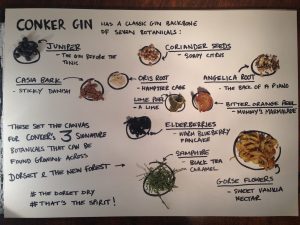 CONKER GIN HAS A CLASSIC GIN BACKBONE
OF SEVEN BOTANICALS:
JUNIPER
- THE GIN BEFORE THE
TONIC
CORIANDER SEEDS
- SOAPY CITRUS
CASIA BARK
- STICKLY DANISH
ORIS ROOT
- HAMPSTER CAGE
ANGELICA ROOT
- THE BACK OF A PIANO
LIME PEEL
- A LIME
BITTER ORANGE PEEL
- MUMMY'S MARMALADE
THESE SET THE CANVAS
FOR CONKER'S 3 SIGNATURE
BOTANICALS THAT CAN BE
FOUND GROWING ACROSS
DORSET & THE NEW FOREST
ELDERBERRIES
- WARM BLUEBERRY
PANCAKE
SAMPHIRE
- BLACK TEA
CARAMEL
GORSE FLOWERS
- SWEET VANILLA
NECTAR
# THE DORSET DRY
# THAT'S THE SPIRIT!